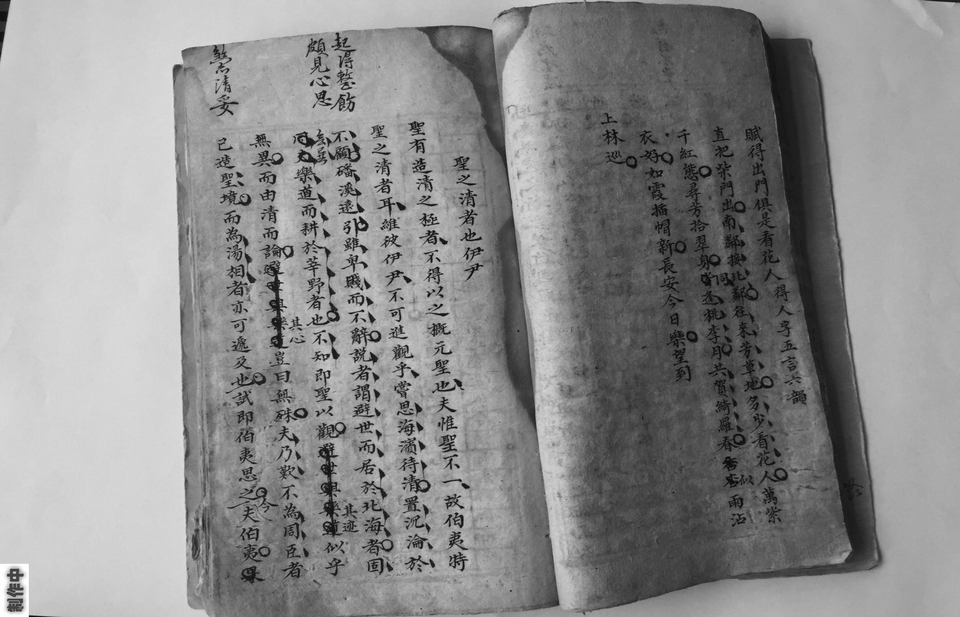 賦得出門俱是看花人得人字五言六韻
直把柴門出南鄰接北鄰往來芳草地多少看花人萬紫
千紅態尋芳拾翠身同逢桃李月共賀綺羅春 似雨沾
衣好如霞插帽新長安今日樂望到
上林巡
起得整飭
頗見心思
聖之清者也伊尹
聖有造清之極者不得以之概元聖也夫惟聖不一故伯夷特
聖之清者耳維彼伊尹不可進觀乎嘗思海濱待清置沉淪於
不顧磻溪遠引雖卑賤而不辭說者謂避世而居於北海者固
樂道而耕於莘野者也不知即聖以觀其迹似乎
無異而由清而論其心豈曰無殊夫乃歎不為周臣者
已造聖境而為湯相者亦可遞及也試即伯夷思之今夫伯夷果
清妥
制作中